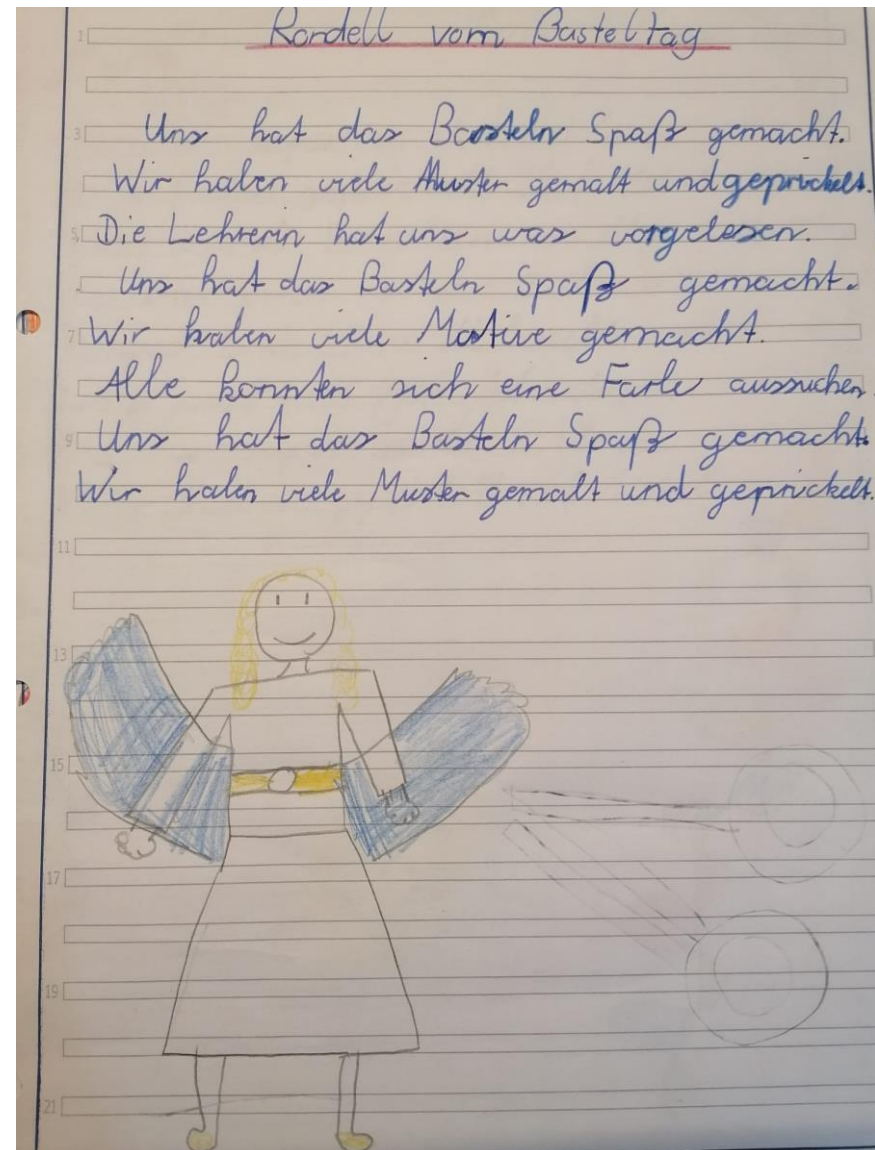 Rondell vom Basteltag
Uns hat das Basteln Spaß gemacht.
Wir haben viele Muster gemalt und geprickelt.
Die Lehrerin hat uns was vorgelesen.
Uns hat das Basteln Spaß gemacht.
Wir haben viele Motive gemacht.
Alle konnten sich eine Farbe aussuchen
Uns hat das Basteln Spaß gemacht.
Wir haben viele Muster gemalt und geprickelt.
1
3
5
7
9
11
13
15
17
19
21